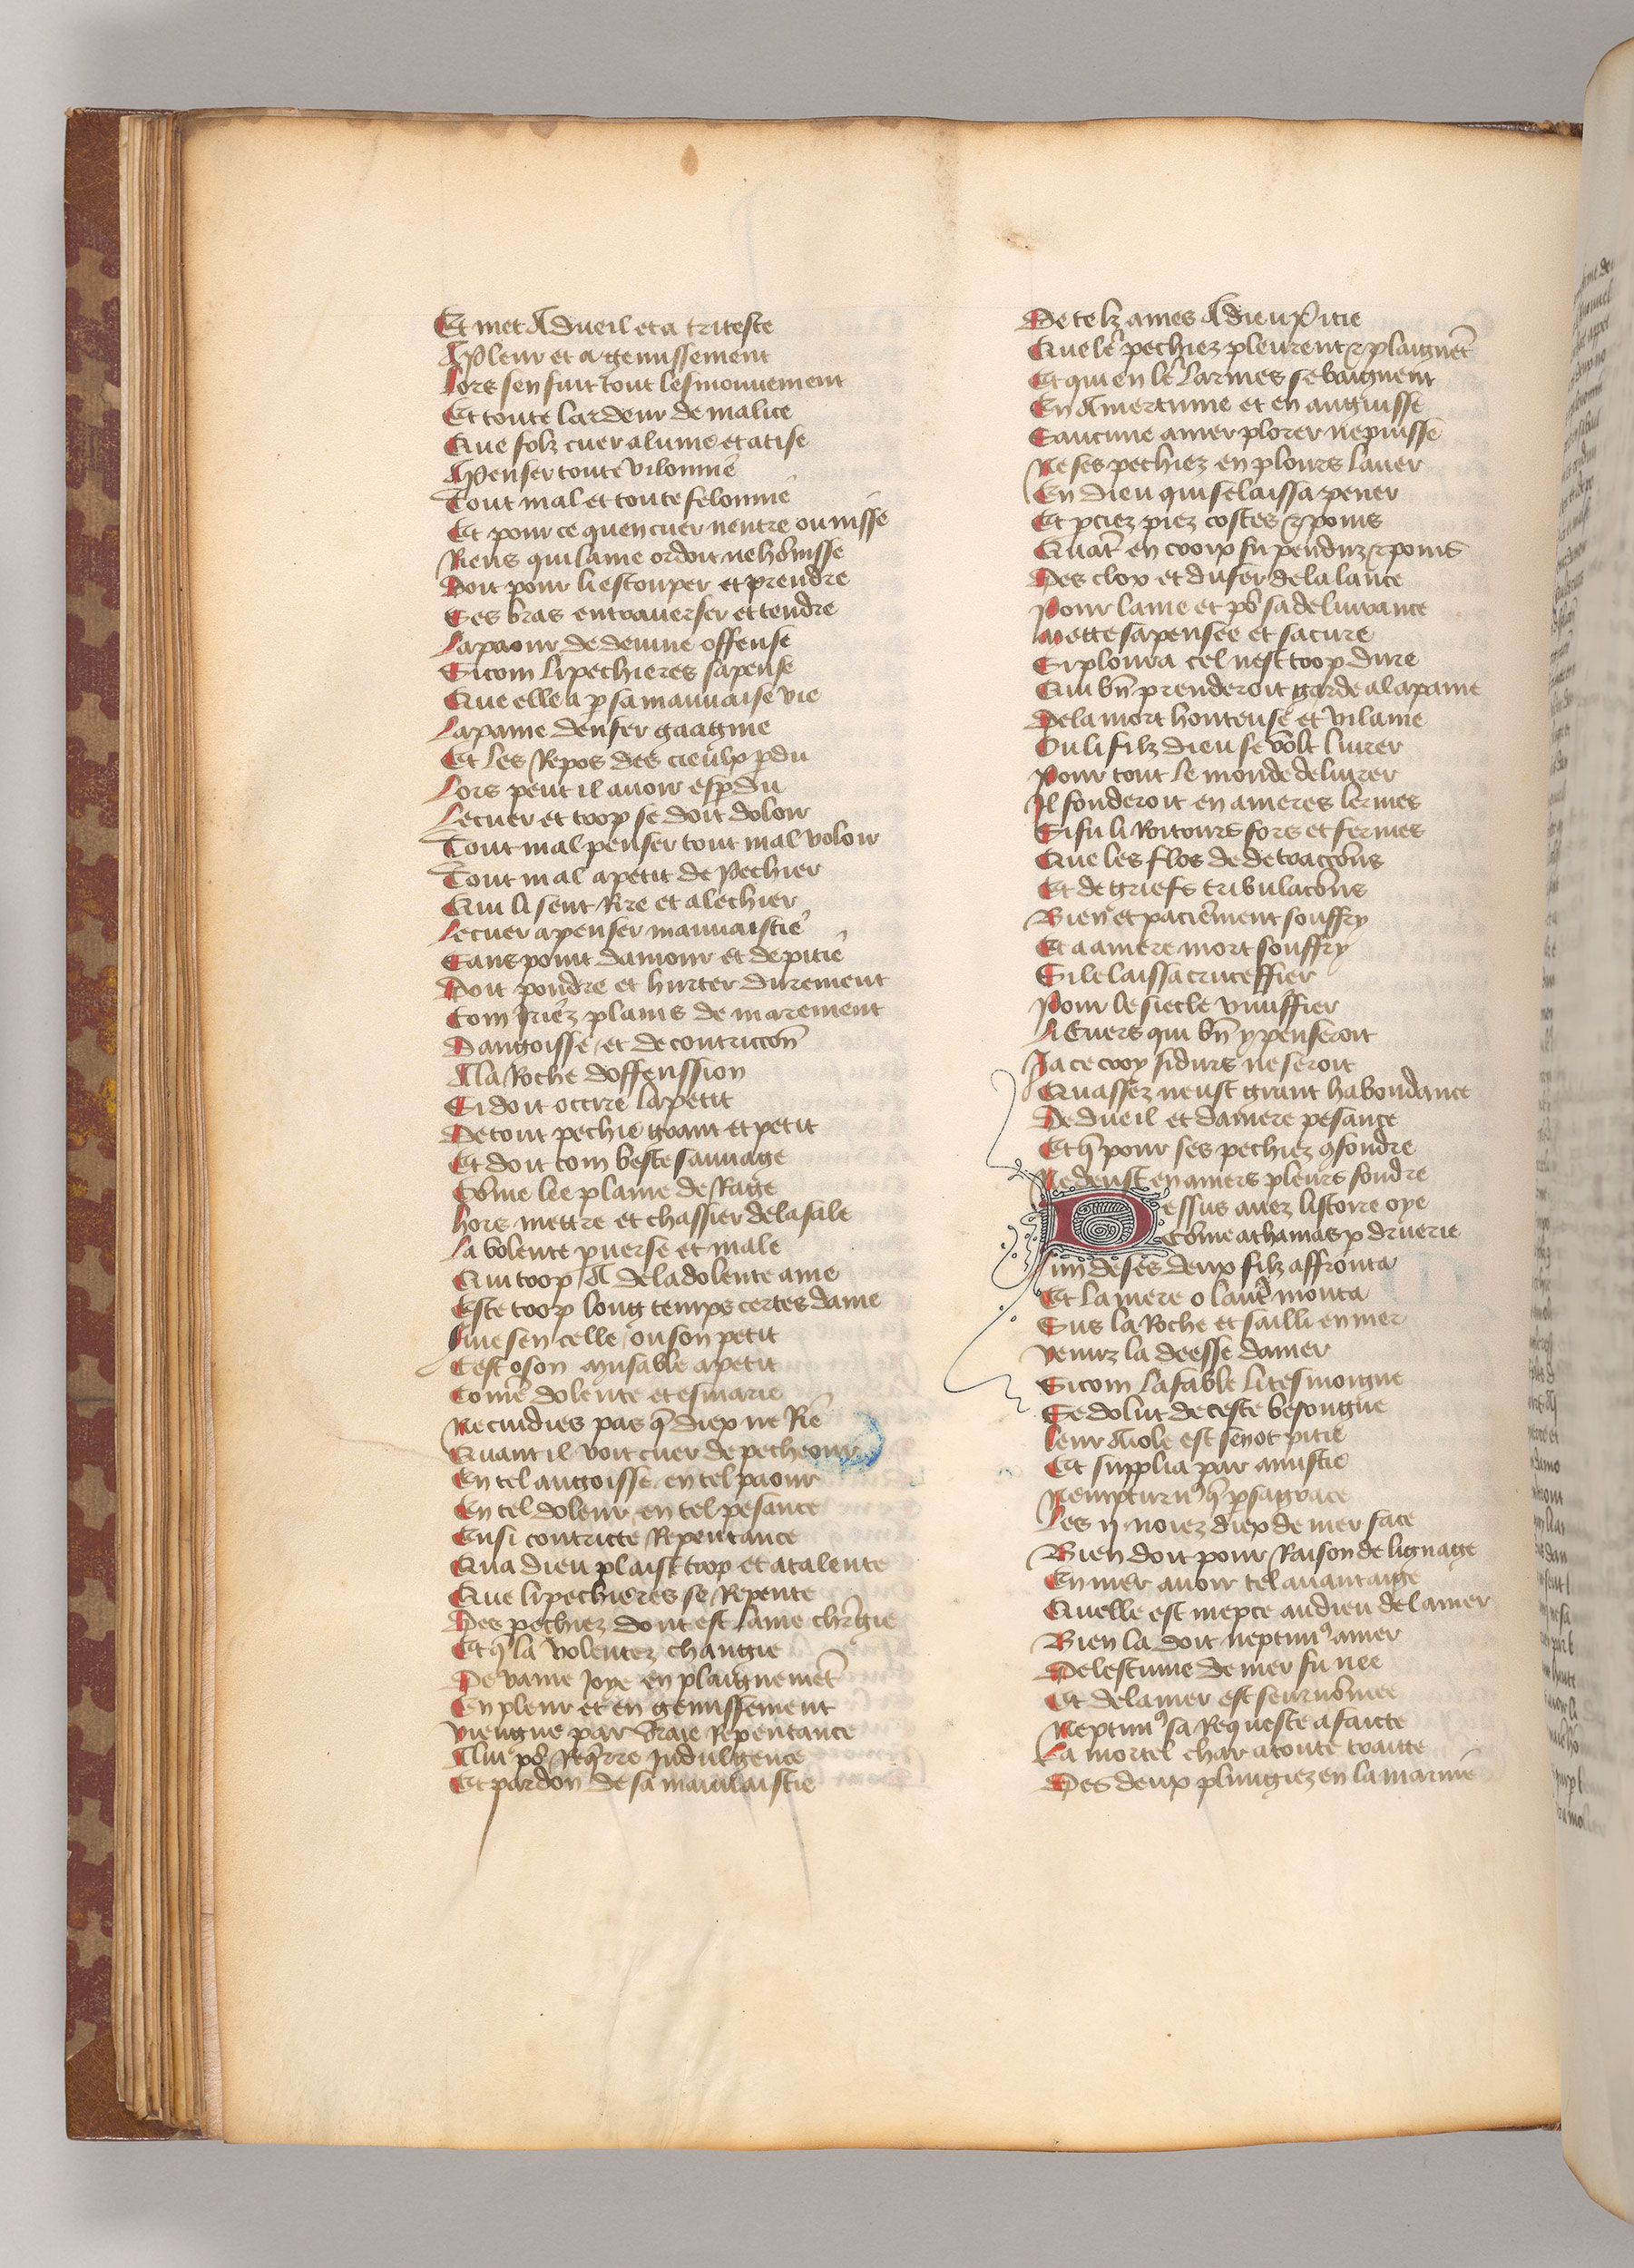 Et met A dueil et a triteste
A Pleur et a gemissement
Lors sen fuit tout les mouuement
Et toute lardeur de malice
Que folz cuer alume et atise
A Penser toute vilonnie
Tout mal et toute felonnie
Et pour ce quen cuer nentre ou nisse
Riens qui lame ordoit ne hōnisse
Doit pour li estouper et prendre
Ses bras entrauerser et tendre
La paour de deuine offense
Sicom li pechieres sapense
Que elle a p sa mauuaise vie
La paine denfer gaagnie
Et les Repos des cieulx pdu
Lors peut il auoir espdu
Le cuer et trop se doit doloir
Tout mal penser tout mal voloir
Tout mal apetit de Pechier
Qui li sent Rire et alechier
Le cuer a penser mauuaistie
Sans point damour et de pitie
Doit poindre et hurter durement
Com Iriez plains de marement
Dangoisse et de contriccōn
A la Roche doffenssion
Si doit occire lapetit
De tout pechie grant et petit
Et doit com beste sauuage
Cōme lee plaine de Rage
hors mettre et chassier de la sale
La volente puerse et male
Qui trop A de la dolente ame
Este trop long temps certes dame
Quesen celle ou son petit
Cest o son nuisable apetit
Comē dolente et esmarie
Ne cuidies pas q̄ diex ne Rie
Quant il voit cuer de pecheour
En tel angoisse en tel paour
En tel doleur en tel pesance
Ensi contricte Repentance
Qua dieu plaist trop et atalente
Que li pechieres se Repente
Des pechiez dont est lame chrgie
Et q̄ la volentez changie
De vaine Joye en plaignemēt
En pleur et en gemissement
viengne par vraie Repentance
A lui po Reqrre Indulgence
Et pardon de sa mauuaistie
De telz ames A dieu Pitie
Que le pechiez pleurent & plaignēt
Et qui en le larmes se baignent
En Amertume et en anguisse
Saucune amer plorer ne puisse
Ne ses pechiez en plours lauer
En dieu qui se laissa pener
Et pciez piez costes & poins
Quāt en croix fu penduz & poins
Des clox et du fer de la lance
Pour lame et po sa deliurance
Mette sa pensee et sa cure
Si ploura cel nest trop dure
Qui bn̄ prenderoit garde a la paine
De la mort honteuse et vilaine
Ou li filz dieu se volt liurer
Pour tout le monde deliurer
Il fonderoit en ameres lermes
Si fu li Roitours fors et fermes
Que les flos de detraccōns
Et de griefs tribulacōns
Bien et paciēment souffry
Et a amere mort souffry
Si le laissa cruceffier
Pour le siecle viuiffier
Li Cuers qui bn̄ y penseroit
Ja ce croy si durs ne seroit
Quassez neust grant habondance
De dueil et damere pesance
Et q̄ pour ses pechiez 9fondre
Ne deust en amers pleurs fondre
Dessus auez listoire oye
Cōme athamas p druerie
Lun de ses deux filz affronta
Et la mere o lautre monta
Sus la Roche et sailli en mer
Venuz la deesse damer
Sicom la fable li tesmoigne
Se dolut de ceste besongne
Leur Aiole est sen ot pitie
Et supplia par amistie
Nempturn9 q̄ p sa grace
Les ij noiez diex de mer face
Bien doit pour Raison de lignage
En mer auoir tel auantaige
Quelle est niepce au dieu de la mer
Bien la doit neptun9 amer
De lescume de mer fu nee
Et de la mer est seurnōmee
Neptun9 sa Requeste a faicte
La mortel char a toute traitte
Des deux plungiez en la marine